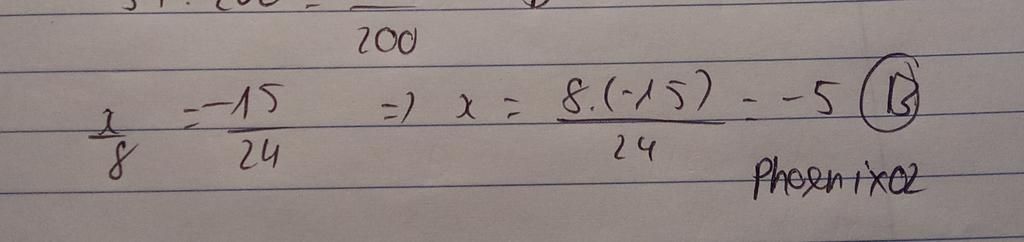 200
x/8 = -15/24 => x = 8.(-15)/24 = -5 B
Phoenix02